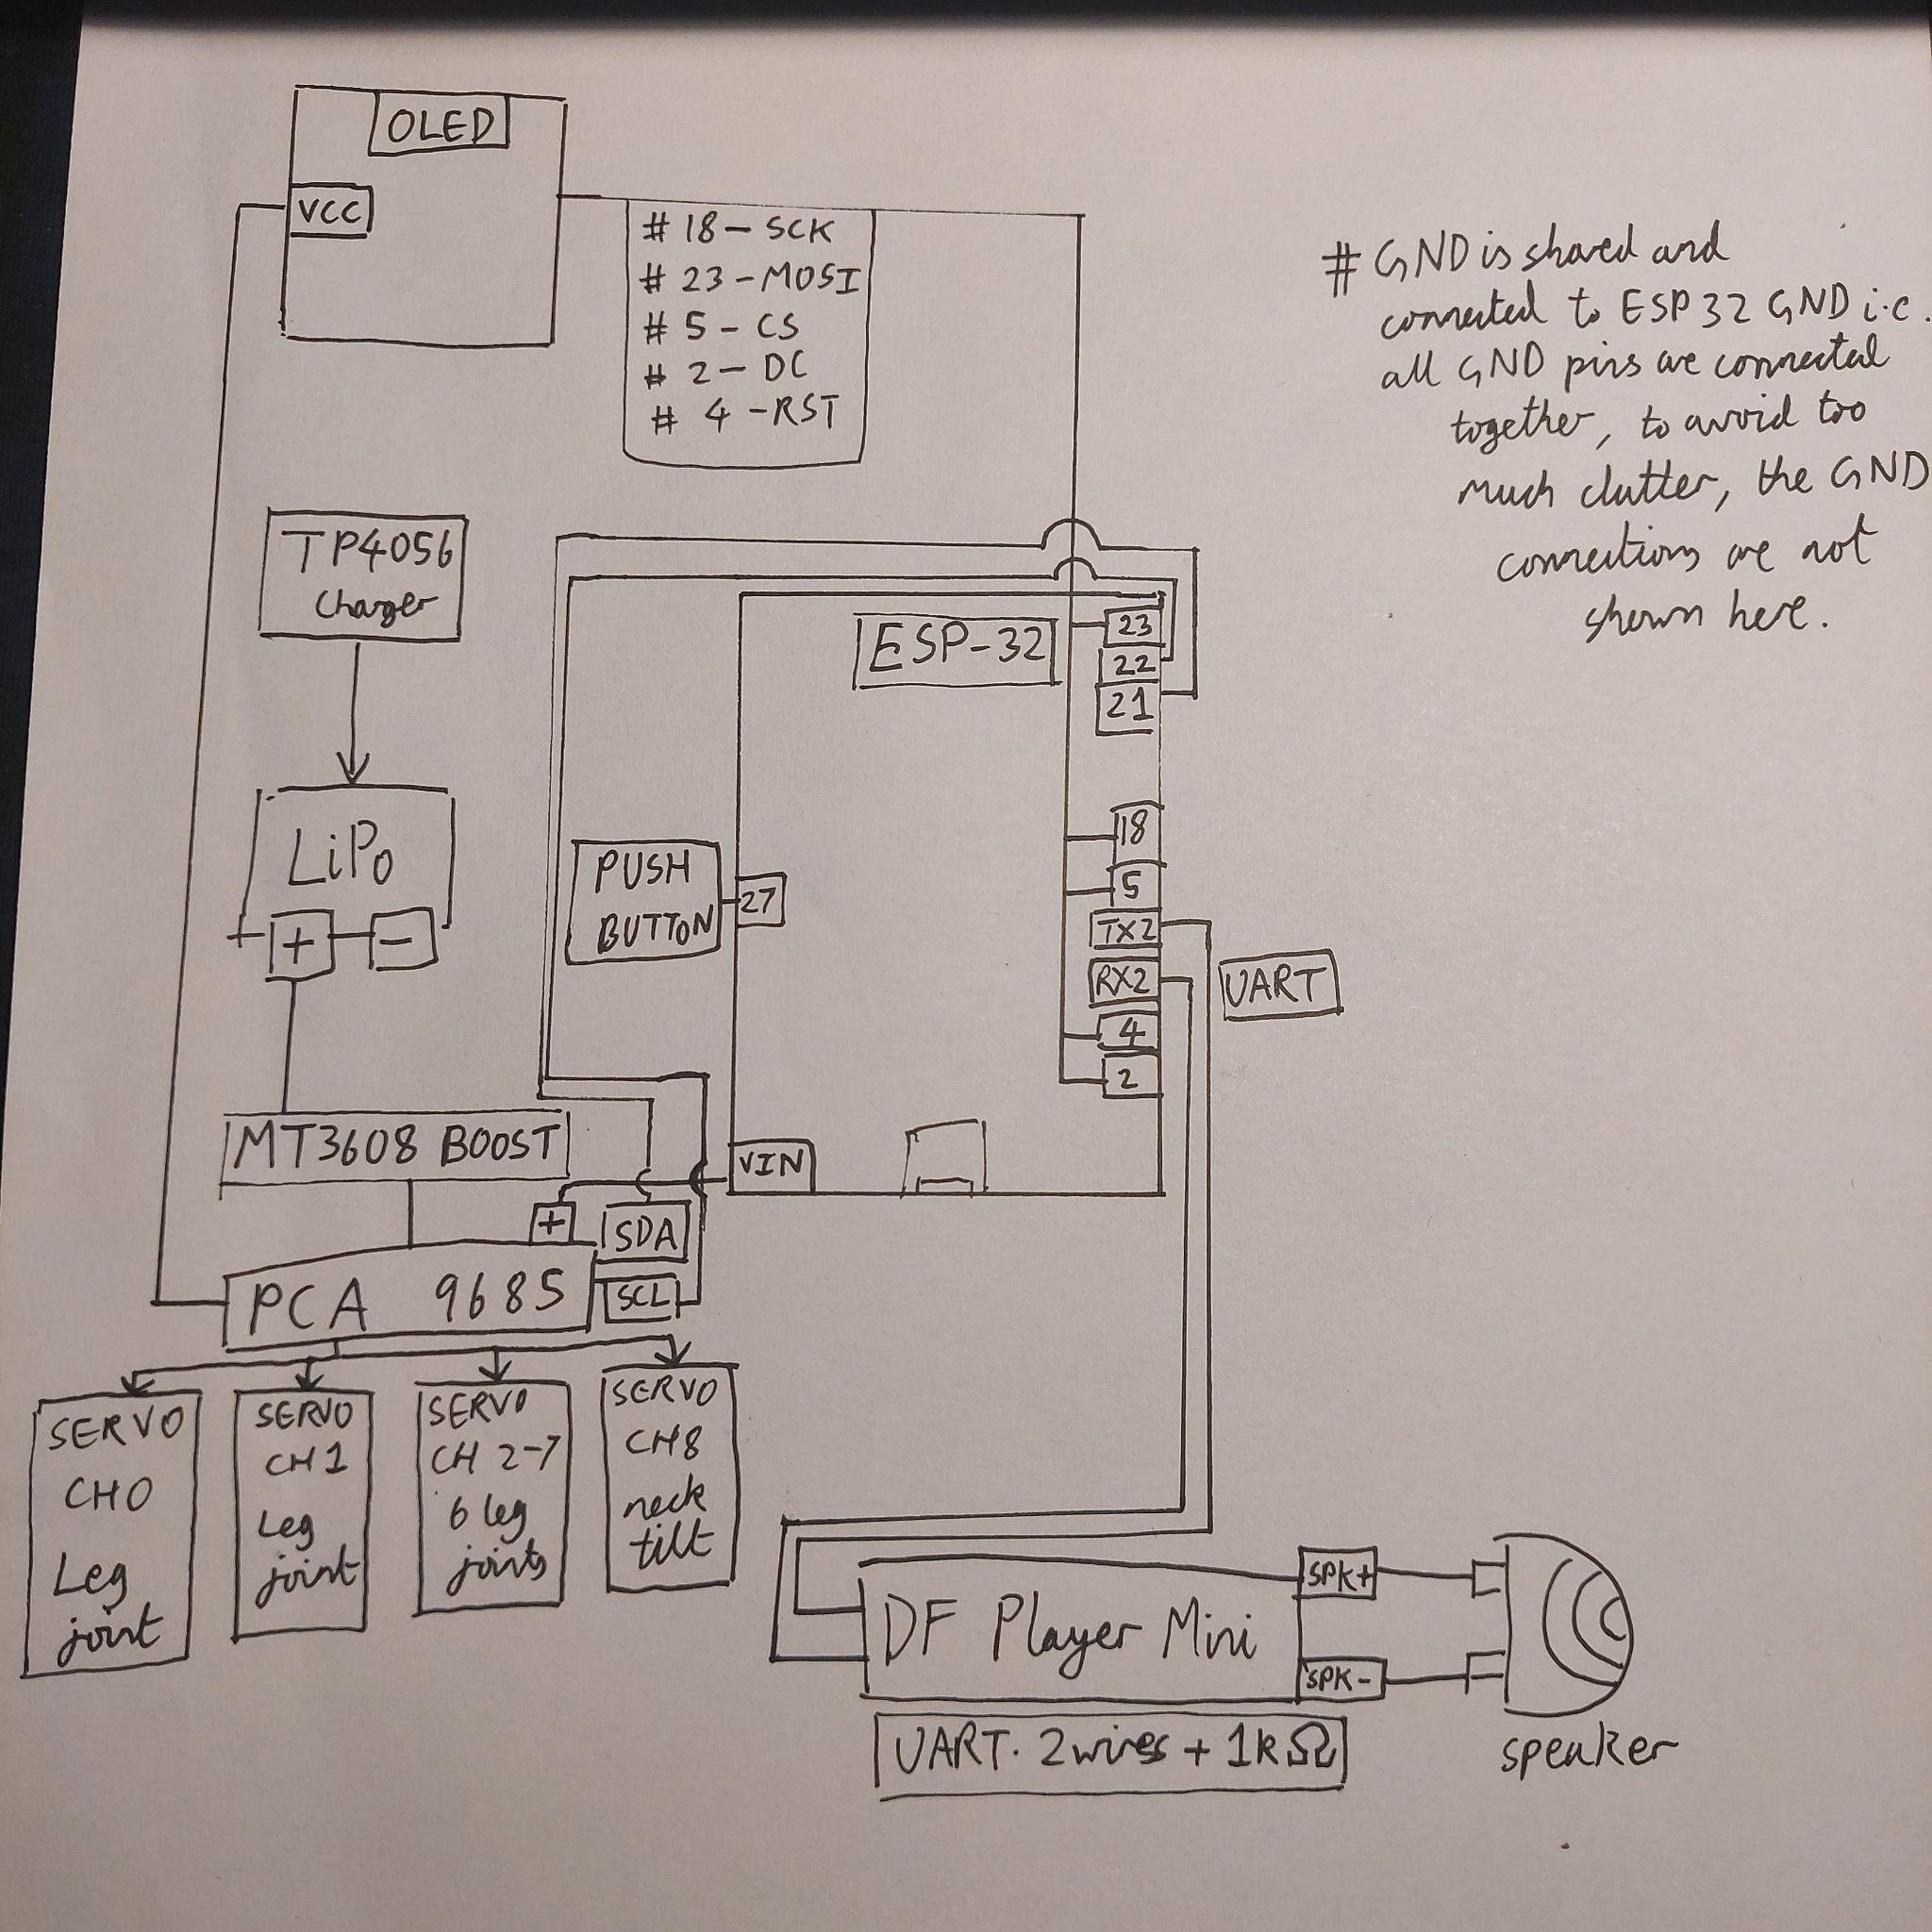 OLED
VCC
# 18 - SCK
# 23 - MOSI
# 5 - CS
# 2 - DC
# 4 - RST
# GND is shared and
connected to ESP32 GND i.e.
all GND pins are connected
together, to avoid too
much clutter, the GND
connections are not
shown here.
TP4056
Charger
LiPo
+
-
ESP-32
23
22
21
18
5
TX2
RX2
4
2
UART
PUSH
BUTTON
27
VIN
MT3608 BOOST
+
SDA
SCL
PCA 9685
SERVO
CH0
Leg
joint
SERVO
CH1
Leg
joint
SERVO
CH 2-7
6 leg
joints
SERVO
CH8
neck
tilt
DF Player Mini
SPK+
SPK-
speaker
UART. 2 wires + 1kΩ